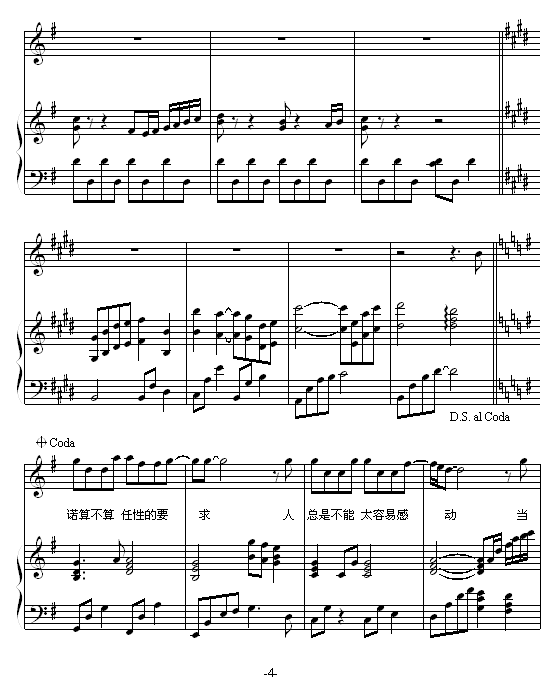 D.S. al Coda
Coda
诺算不算 任性的要 求 人 总是不能 太容易感 动 当
-4-